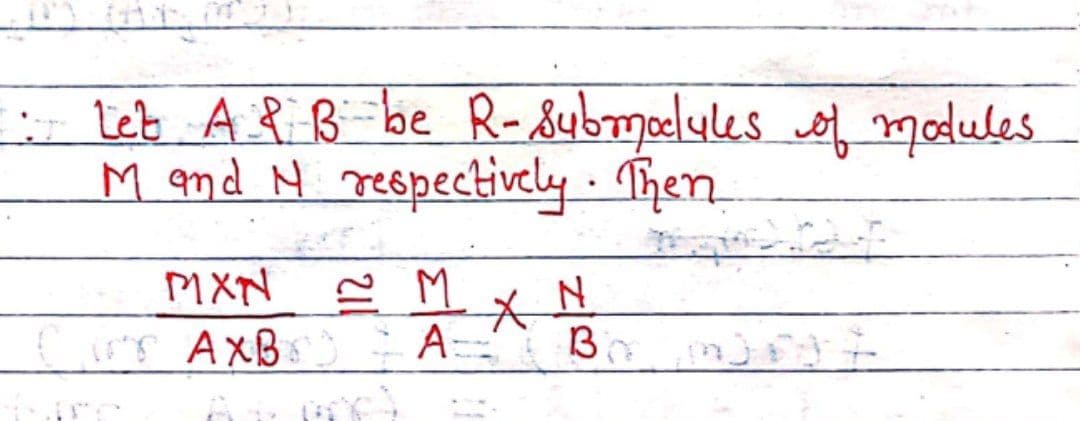 ∴ Let A & B be R-Submodules of modules
M and N respectively. Then
M×N/A×B ≅ M/A × N/B